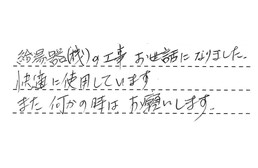 給湯器(機)の工事 お世話になりました.
快適に使用しています.
また何かの時は お願いします.